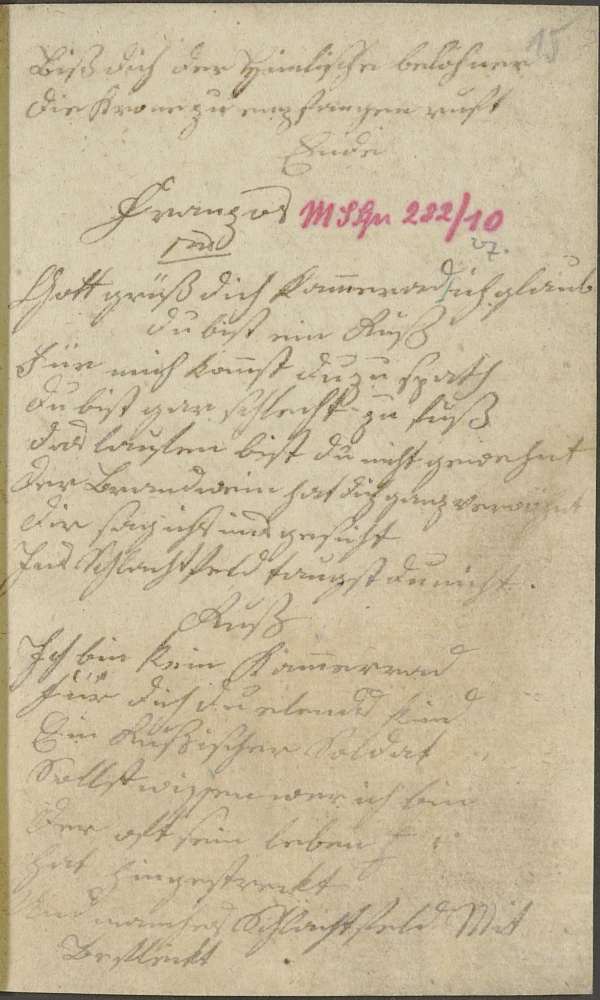 15
Biß dich der Himlische belohner
die Krone zu empfangen ruft
Ende
Franzos MSHu 222/10
1ms 27.
Gott grüß dich Kammerad ich glaub
du bist ein Ruß
Für mich komst du zu spath
du bist gar schlecht zu fuß
das laufen bist du nicht gewehnt
der Brandwein hat dich ganz verwöhnt
dir sag ichs ins gesicht
Ins Schlachtfeld taugst du nicht.
Ruß
Ich bin kein Kammerrad
für dich du elends kind
Ein Rußischer Soldat
Sollst wissen wer ich bin
der oft sein leben
hat hingestreckt
Und manches Schlachtfeld Mit